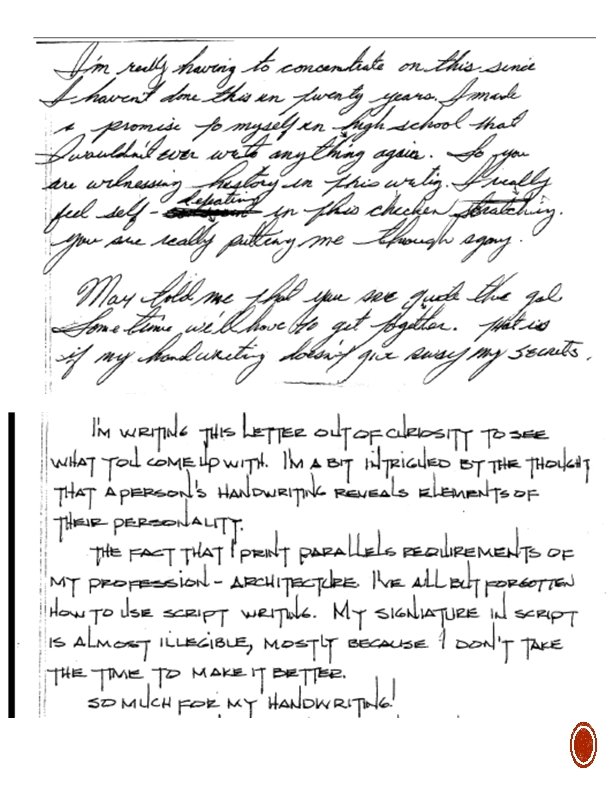 I'm really having to concentrate on this since
I haven't done this in twenty years. I made
a promise to myself in high school that
I wouldn't ever write anything again. So you
are witnessing history in this writig. I really
repeating
feel self - in this chicken scratching.
You are really putting me through agony.
Max told me that you are quite the gal
Some time we'll have to get together. That is
if my handwriting doesn't give away my secrets.
I'M WRITING THIS LETTER OUT OF CURIOSITY TO SEE
WHAT YOU COME UP WITH. I'M A BIT INTRIGUED BY THE THOUGHT
THAT A PERSON'S HANDWRITING REVEALS ELEMENTS OF
THEIR PERSONALITY.
THE FACT THAT I PRINT PARALLELS REQUIREMENTS OF
MY PROFESSION - ARCHITECTURE. I'VE ALL BUT FORGOTTEN
HOW TO USE SCRIPT WRITING. MY SIGNIATURE IN SCRIPT
IS ALMOST ILLEGIBLE, MOSTLY BECAUSE I DON'T TAKE
THE TIME TO MAKE IT BETTER.
SO MUCH FOR MY HANDWRITING!